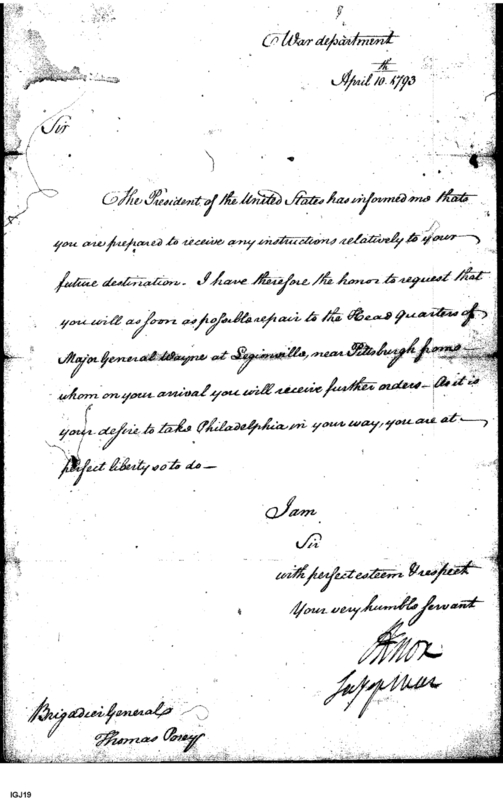 War department
April 10.th 1793
Sir
The President of the United States has informed me that
you are prepared to receive any instructions relatively to your
future destination. I have therefore the honor to request that
you will as soon as possible repair to the Head quarters of
Major General Wayne at Legionville, near Pittsburgh from
whom on your arrival you will receive further orders — As it is
your desire to take Philadelphia in your way, you are at
perfect liberty so to do —
I am
Sir
with perfect esteem & respect
Your very humble Servant
HKnox
Secy of War
Brigadier General
Thomas Posey
IGJ19